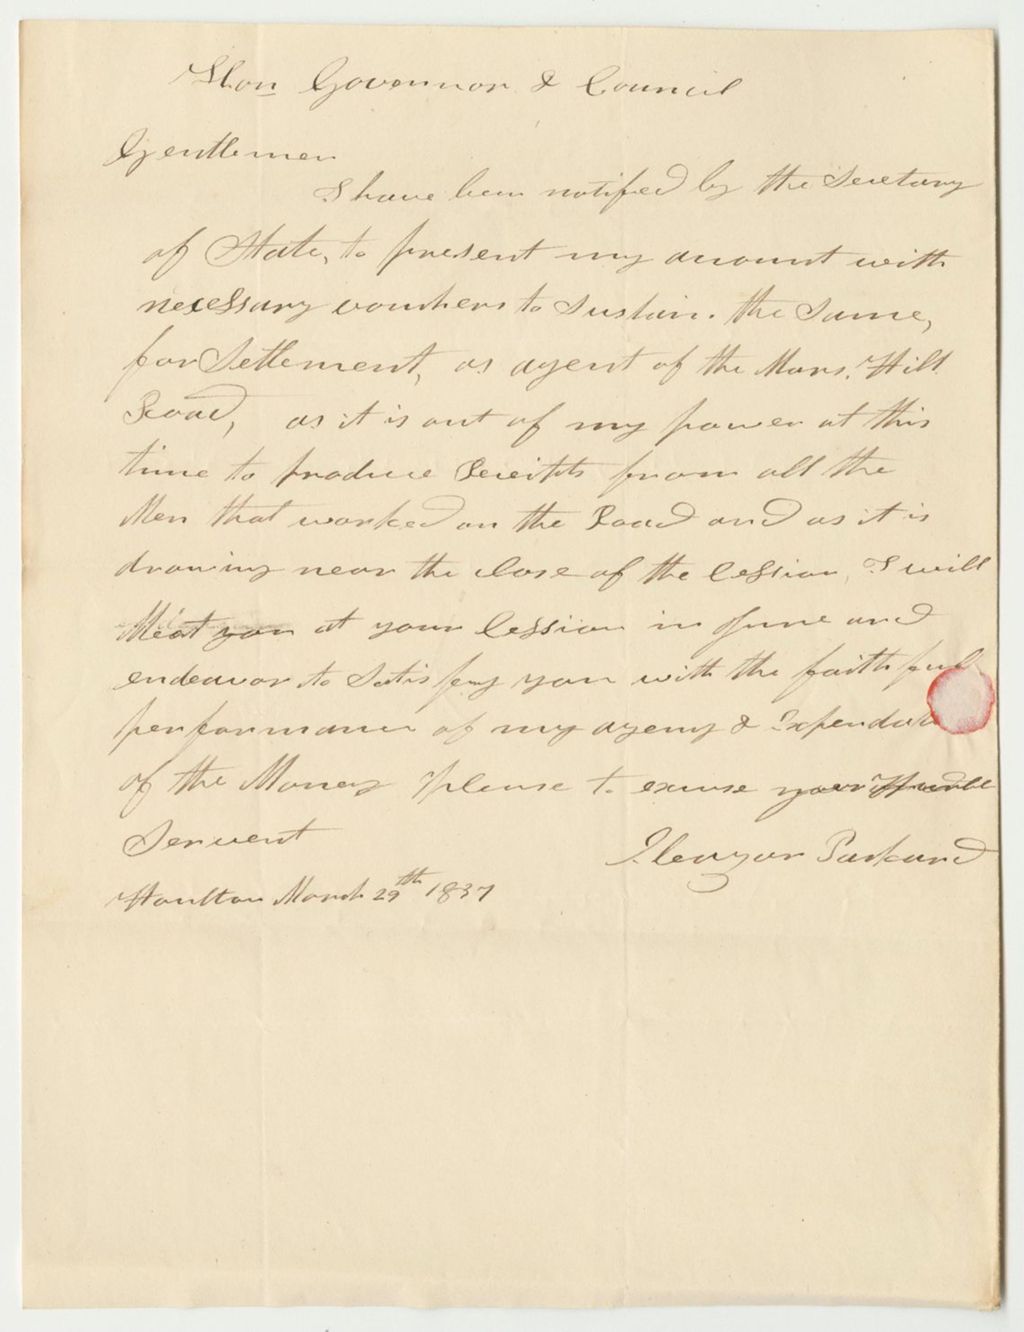 Hon Governor & Council
Gentlemen
I have been notified by the Secretary
of State, to present my account with
necessary vouchers to Sustain. the Same,
for Settlement, as agent of the Mars. Hill
Road, as it is out of my power at this
time to produce Receipts from all the
Men that worked on the Road and as it is
drawing near the close of the Cession, I will
Meat you at your Cession in June and
endeavor to Satisfy you with the faithful
performance of my agency &
of the Money please to excuse your Humble
Servent
Eleazar Packard
Houlton March 29th 1837